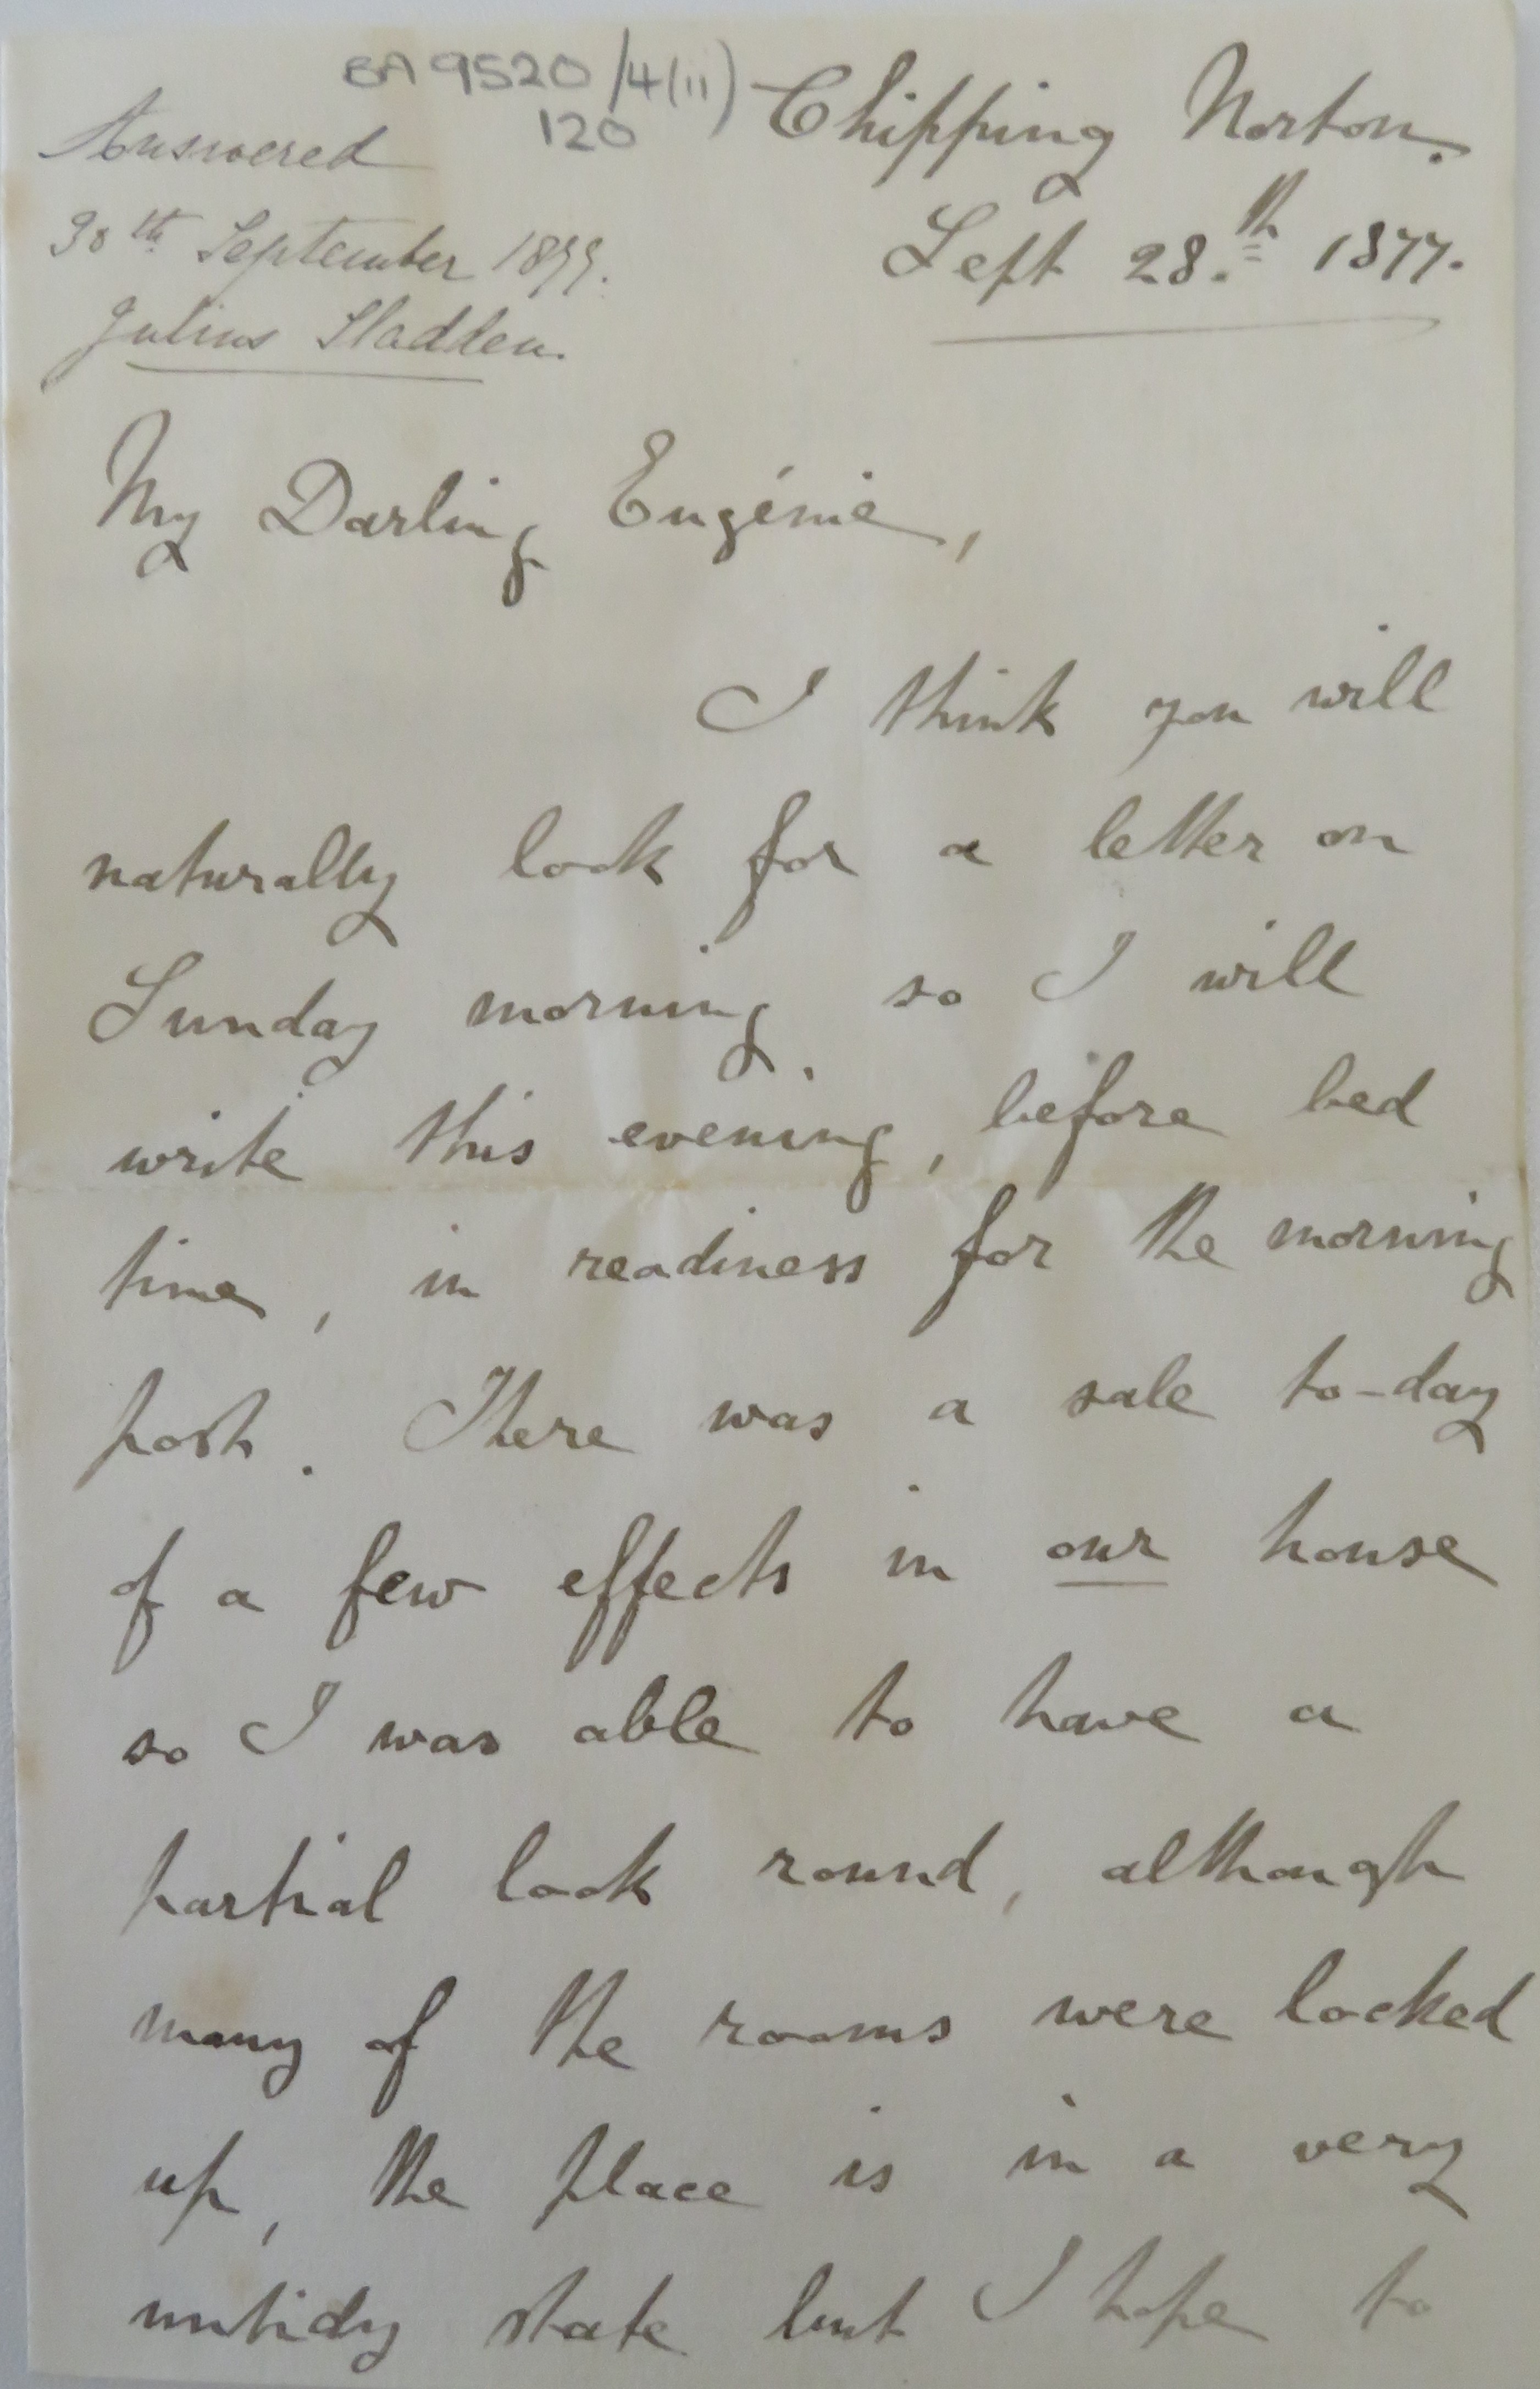 BA 9520/4(ii)
120
Answered
30th September 1877.
Julius Sladden.
Chipping Norton.
Sept 28.th 1877.
My Darling Eugénie,
I think you will
naturally look for a letter on
Sunday morning, so I will
write this evening, before bed
time, in readiness for the morning
post. There was a sale to-day
of a few effects in our house
so I was able to have a
partial look round, although
many of the rooms were locked
up, the place is in a very
untidy state but I hope to